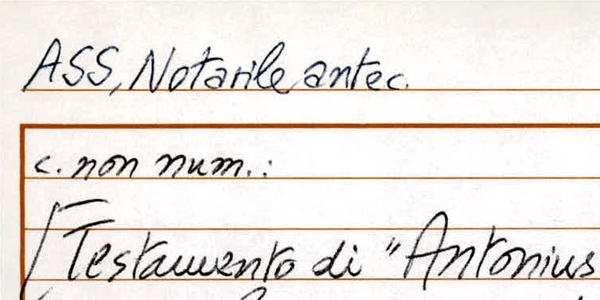 ASS, Notarile antec.
c. non num.:
Testamento di "Antonius